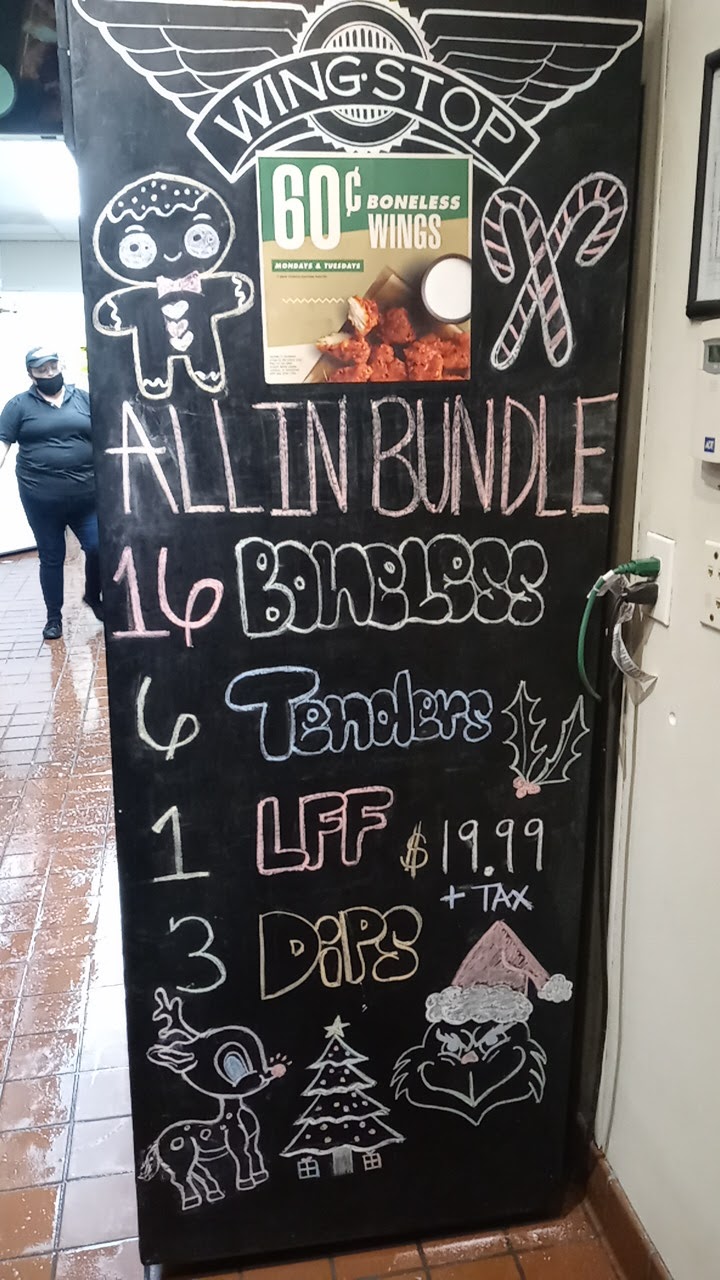 WING·STOP
60¢ BONELESS
WINGS
MONDAYS & TUESDAYS
ALL IN BUNDLE
16 BONELESS
6 Tenders
1 LFF $19.99
+ TAX
3 DiPS
ADT